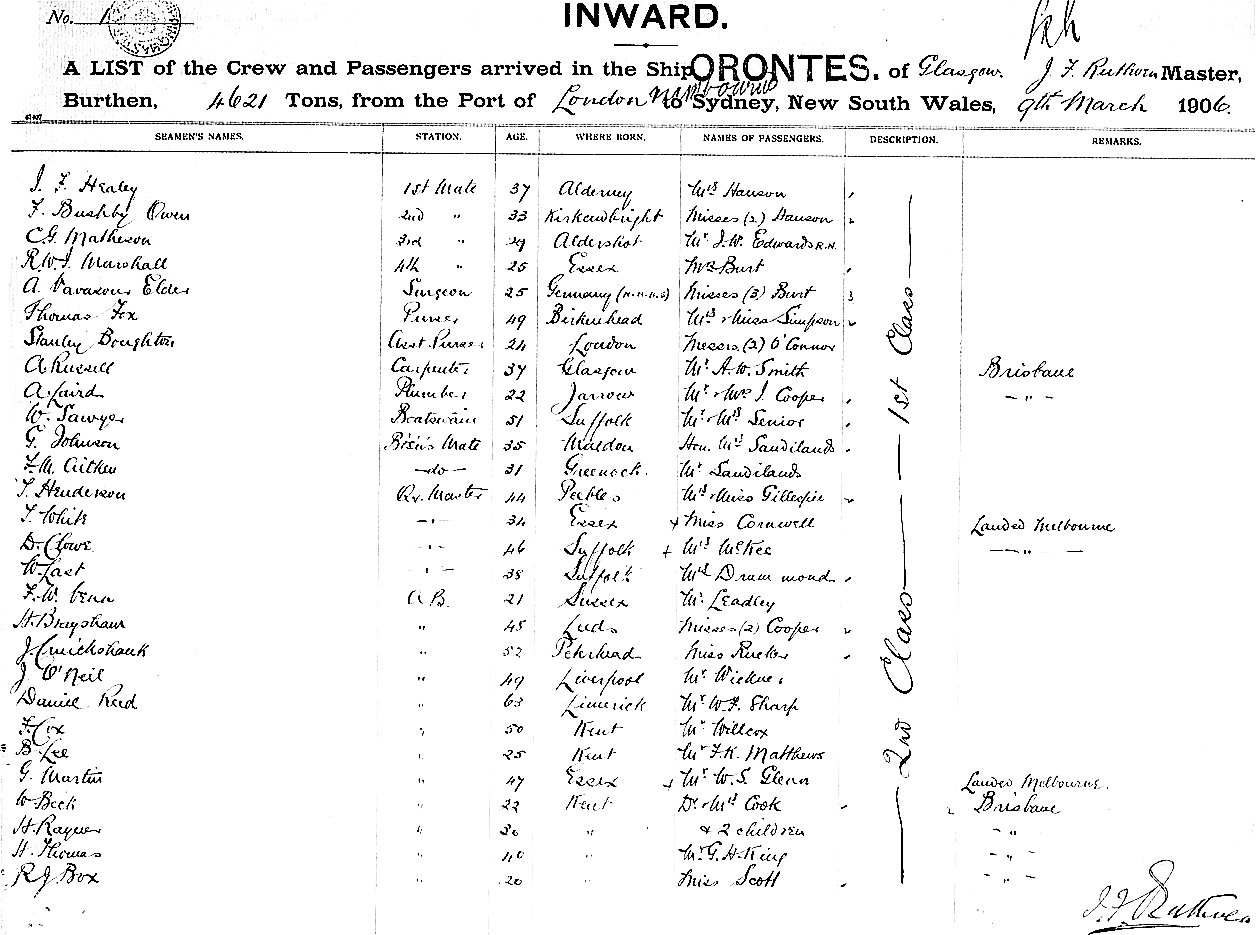 No. 1
INWARD.
A LIST of the Crew and Passengers arrived in the Ship ORONTES. of Glasgow. J. F. Ruthven Master,
Burthen, 4621 Tons, from the Port of London Melbourne to Sydney, New South Wales, 9th March 1906.
SEAMEN'S NAMES. STATION. AGE. WHERE BORN. NAMES OF PASSENGERS. DESCRIPTION. REMARKS.
J. F. Healey 1st Mate 37 Alderney Mrs Hanson
F. Bushby Owen 2nd " 33 Kirkcudbright Misses (2) Hanson
C.G. Matheson 3rd " 29 Aldershot Mr J.W. Edwards R.N.
R.W.J. Marshall 4th " 25 Essex Mrs Burt
A. Vavasour Elder Surgeon 25 Germany Misses (3) Burt
Thomas Fox Purser 49 Birkenhead Mrs Miss Simpson
Stanley Boughton Asst. Purser 24 London Messrs. (2) O'Connor
A Russell Carpenter 37 Glasgow Mr A.W. Smith Brisbane
A. Laird Plumber 22 Jarrow Mr Mrs J. Cooper - " -
W. Sawyer Boatswain 51 Suffolk Mr Mrs Senior
G. Johnson Bos'ns Mate 35 Maldon Hon. Mrs Sandilands
F.M. Aitken -do- 31 Greenock. Mr Sandilands
T. Henderson Qr. Master 44 Peebles Mrs Miss Gillespie
T. White - " - 34 Essex + Miss Cornwell Landed Melbourne
D. Clowe - " - 46 Suffolk + Mrs McKee - " -
W. Last - " - 38 Suffolk Mrs Drummond
F.W. Venn A.B. 21 Sussex Mr Leadley
H. Brayshaw " 45 Leeds Misses (2) Cooper
J. Cruickshank " 52 Peterhead Miss Rucker
J. O'Neil " 49 Liverpool Mr
Daniel Reid " 63 Limerick Mr W.F. Sharp
F. Cox " 50 Kent Mr Willcox
B. Lee " 25 Kent Mr F.K. Matthews
G. Martin " 47 Essex + Mr W.S. Glenn Landed Melbourne.
W Beck " 22 Kent Dr. Mrs Cook Brisbane
H. Rayner " 30 " & 2 children - " -
H. Thomas " 40 " Mr G.H. King - " -
R J Box " 20 " Miss Scott - " -
2nd Class 1st Class
J.F. Ruthven